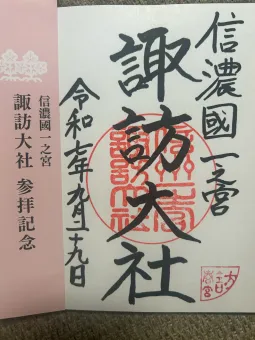 信濃國一之宮
諏訪大社
令和七年九月二十九日
信濃國一之宮
諏訪大社 参拝記念